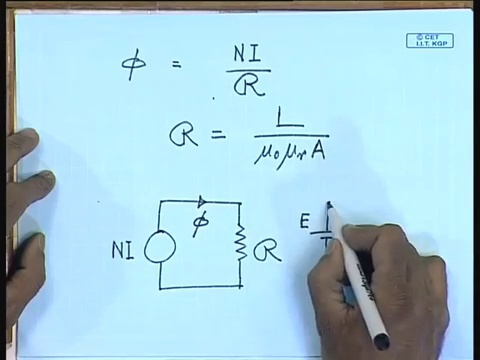 © CET
I.I.T. KGP
ϕ = NI / R
R = L / μ₀μᵣA
ϕ
NI
R
E